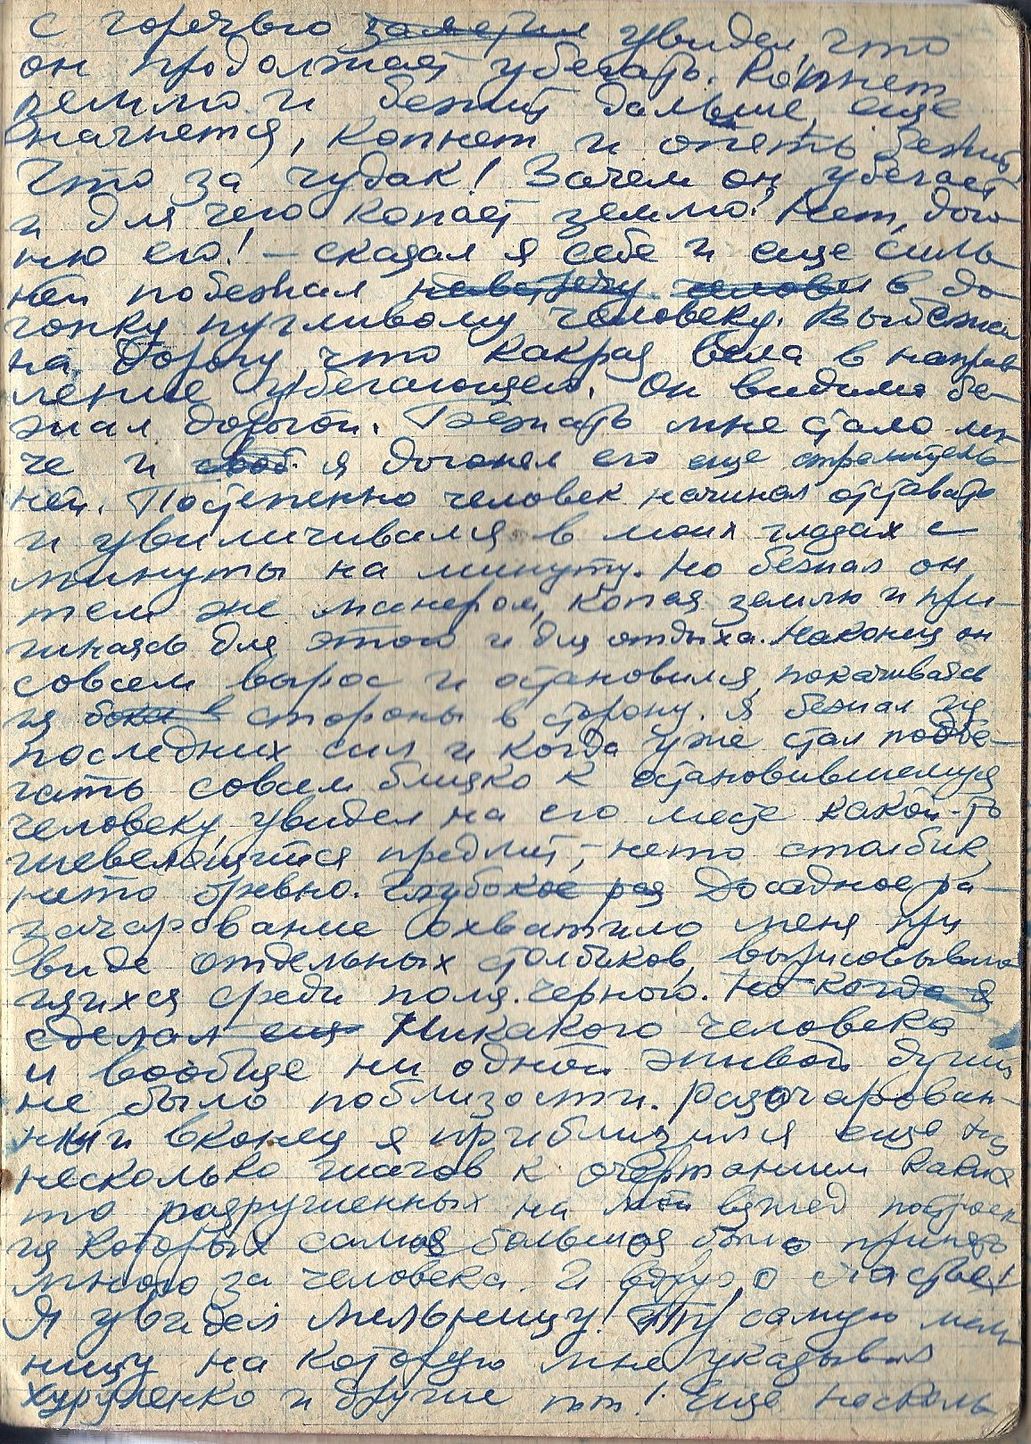 с горечью заметил увидел, что
он продолжает убегать. Копнет
землю и бежит дальше, еще
нагнется, копнет и опять бежит
Что за чудак! Зачем он убегает
и для чего копает землю? Нет, дого
ню его! – сказал я себе и еще силь
ней побежал навстречу человек в до
гонку пугливому человеку. Выбежал
на дорогу, что как раз вела в направ
ление убегающего. Он видимо бе-
жал дорогой. Бежать мне стало лег
че и я догонял его еще стремитель
ней. Постепенно человек начинал отставать
и увиличивался в моих глазах с
минуты на минуту. Но бежал он
тем же манером, копая землю и при-
гинаясь для этого и для отдыха. Наконец он
совсем вырос и остановился, покачиваясь
из бока в стороны в сторону. Я бежал из
последних сил и когда уже стал подбе-
гать совсем близко к остановившемуся
человеку, увидел на его месте какой-то
шевелящийся предмет, – нето столбик,
нето бревно. Глубокое раз Досадное ра-
зачарование охватило меня при
виде отдельных столбиков, вырисовываю
щихся среди поля черного. Но когда я
сделал еще Никакого человека
и вообще ни одной живой души
не было поблизости. Разочарован-
ный вконец я приблизился еще на
несколько шагов к очертаниям каких
то разрушенных на мой взгляд построек
из которых самая большая была принята
мною за человека. И вдруг о счастье!
Я увидел мельницу! Ту самую мель
ницу на которую мне указывал
и другие тт! Еще несколь